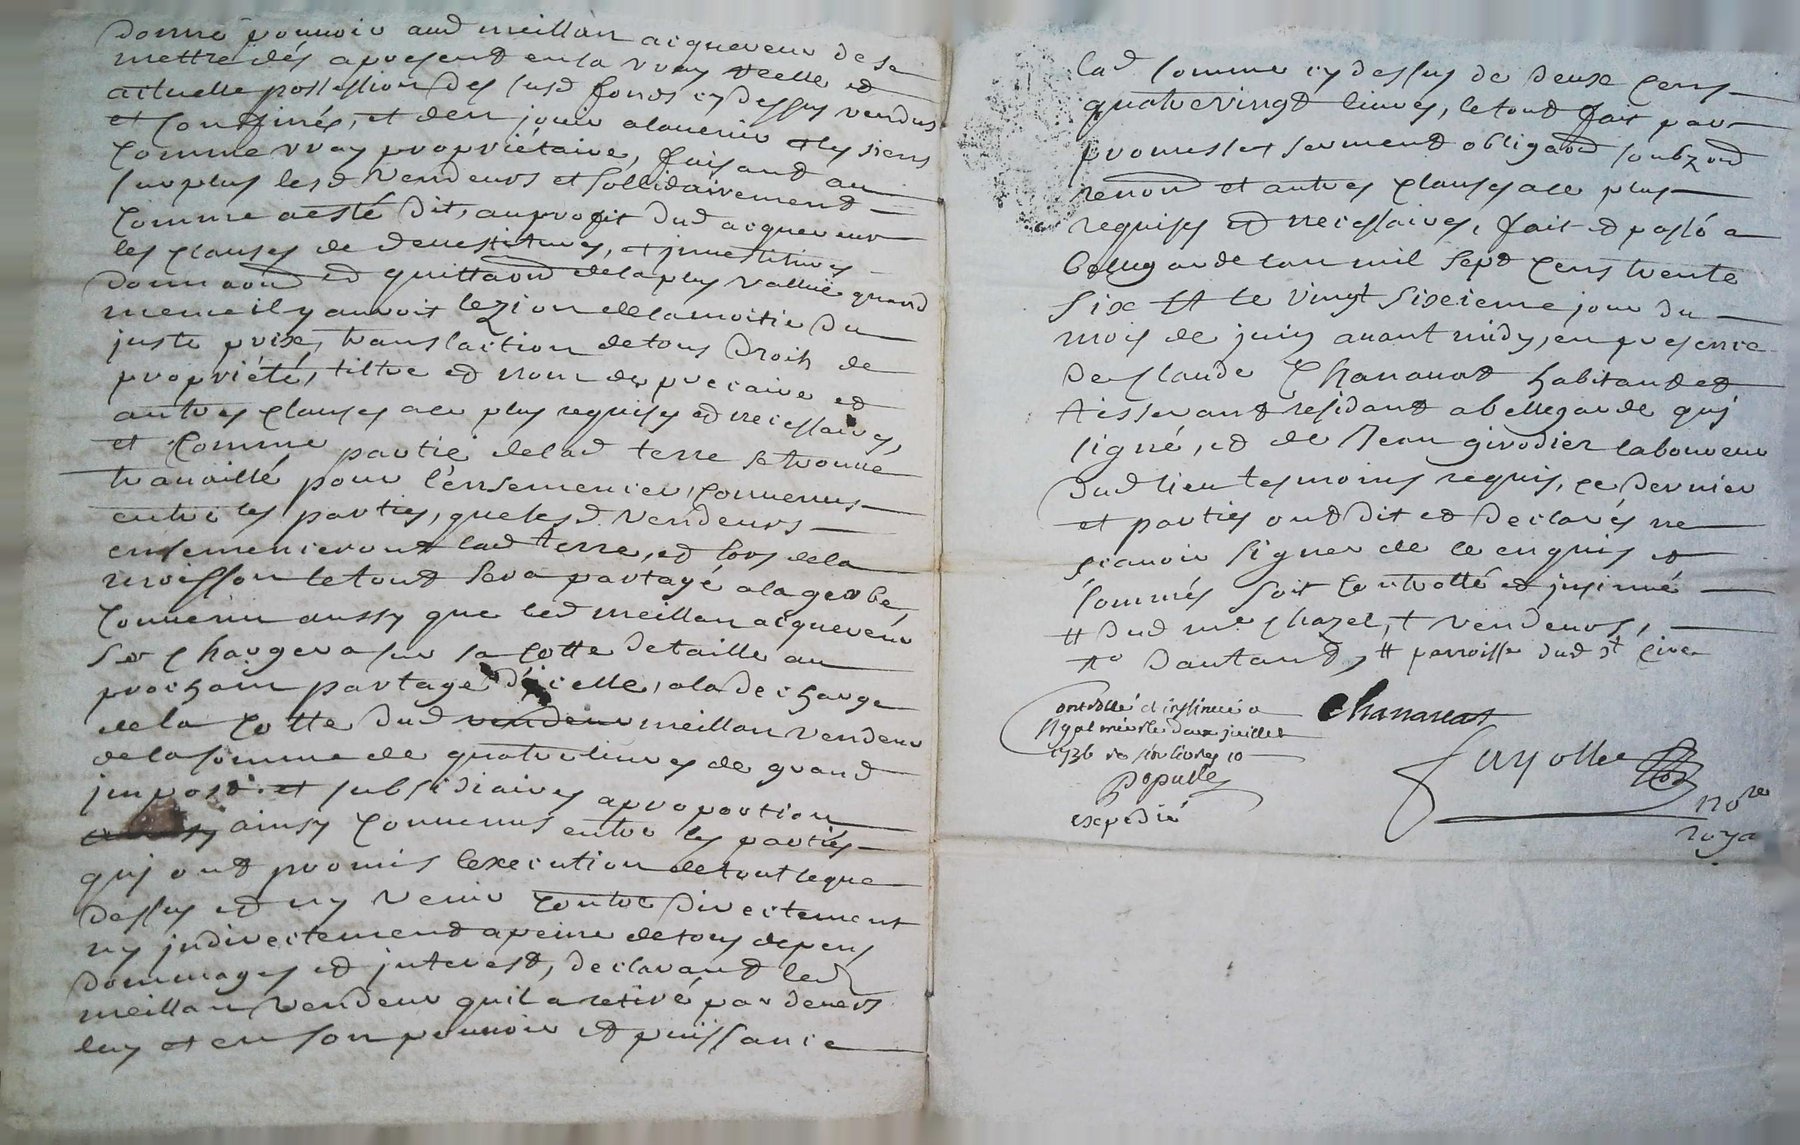 donné pouvoir aud meillan acquereur de se
mettre dés apresent en la vray reelle et
actuelle possession des susd fonds cy dessus vendus
et confinés, et den jouir alauenir et les siens
comme vray propriétaire, faisant au
surplus lesd vendeurs et sollidairement
comme aesté dit, au profit dud acquereur
les clauses de deuestitures, et jnuestitures
donnant et quittant de la plus vallue quand
meme il y auroit lezion delamoitie du
juste prix, translaction de tous droits de
propriété, tiltre et nom de precaire et
autres clauses ace plus requises et necessaires,
et comme partie de lad terre se trouue
trauaillé pour l'ensemencer, conuenus
entre les parties, que lesd vendeurs
ensemenceront lad terre, et lors de la
moisson le tout sera partagé a la gerbe,
conuenu aussy que led meillan acquereur
se chargera sur sa cotte de taille au
prochain partage d'icelle, a la decharge
de la cotte dud vendeur meillan vendeur
de la somme de quatre liures de grand
jmpost et subsidiaires a proportion
ainsy conuenus entre les parties
quj ont promis l'execution de tout ce que
dessus et ny venir contre directement
ny jndirectement a peine de tous depens
dommages et jnterest, declarant led
meillan vendeur qu'il a retiré par deuers
luy et en son pouuoir et puissance
lad somme cy dessus de deux cens
quatrevingt liures, le tout fait par
promesses serment obligaon soubzon
renon et autres clauses ace plus
requises et necessaires, fait et passé a
bellegarde lan mil sept cens trente
six et le vingt sixieme jour du
mois de juin auant midy, en presence
de claude Chanauat habitant et
tisserant residant a bellegarde quj
signé, et de Jean girodier laboureur
dud lieu tesmoins requis, ce dernier
et parties ont dit et declarés ne
scauoir signer de ce enquis et
sommés soit controllé et jnsinué
# dud me chazel, + vendeurs,
dautant, # parroisse dud st
controllé et insinué a
St galmier le deux juillet
1736
Chanauat
fayolle
nore
roya
Populle
expedié